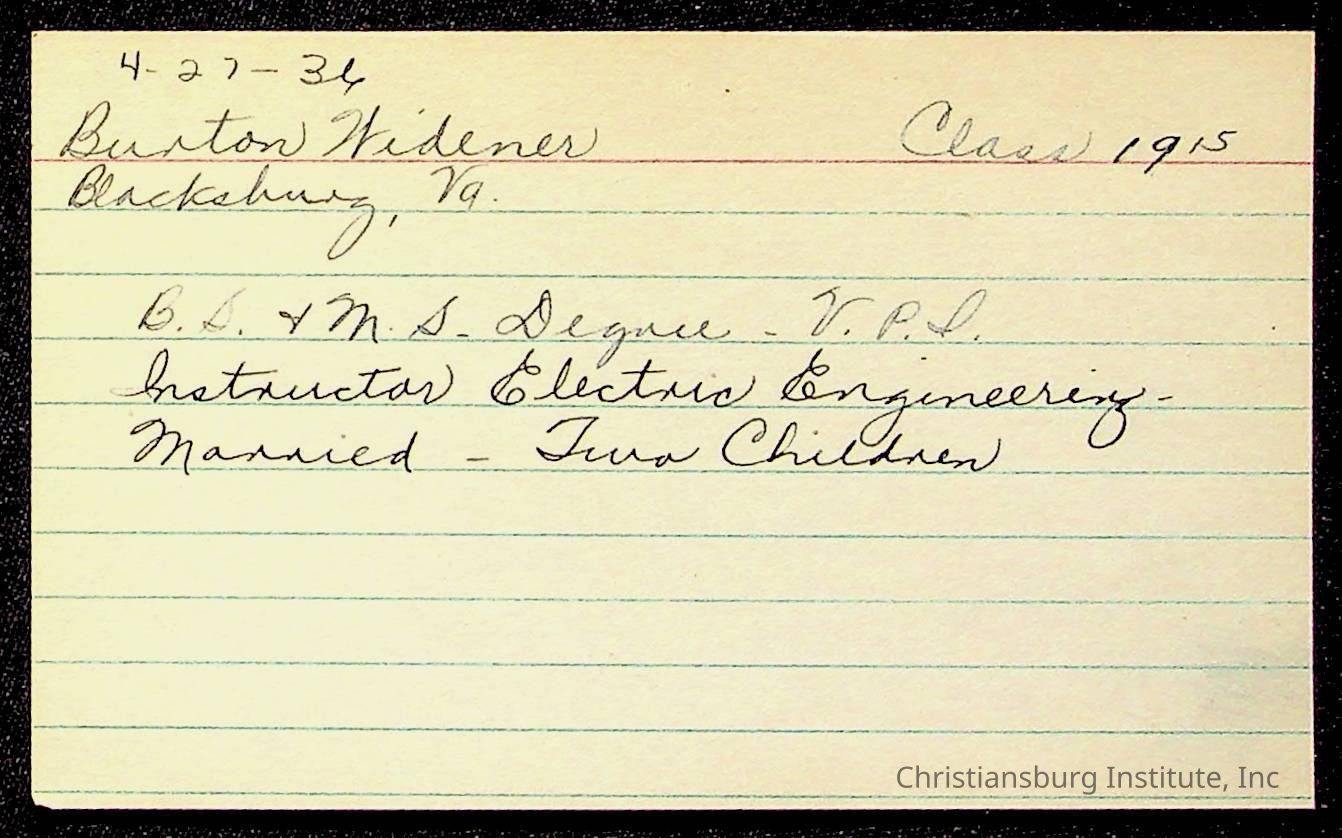 4-27-36
Burton Widener Class 1915
Blacksburg, Va.
B.S. & M.S. Degree - V.P.I.
Instructor Electric Engineering-
Married - Two Children
Christiansburg Institute, Inc